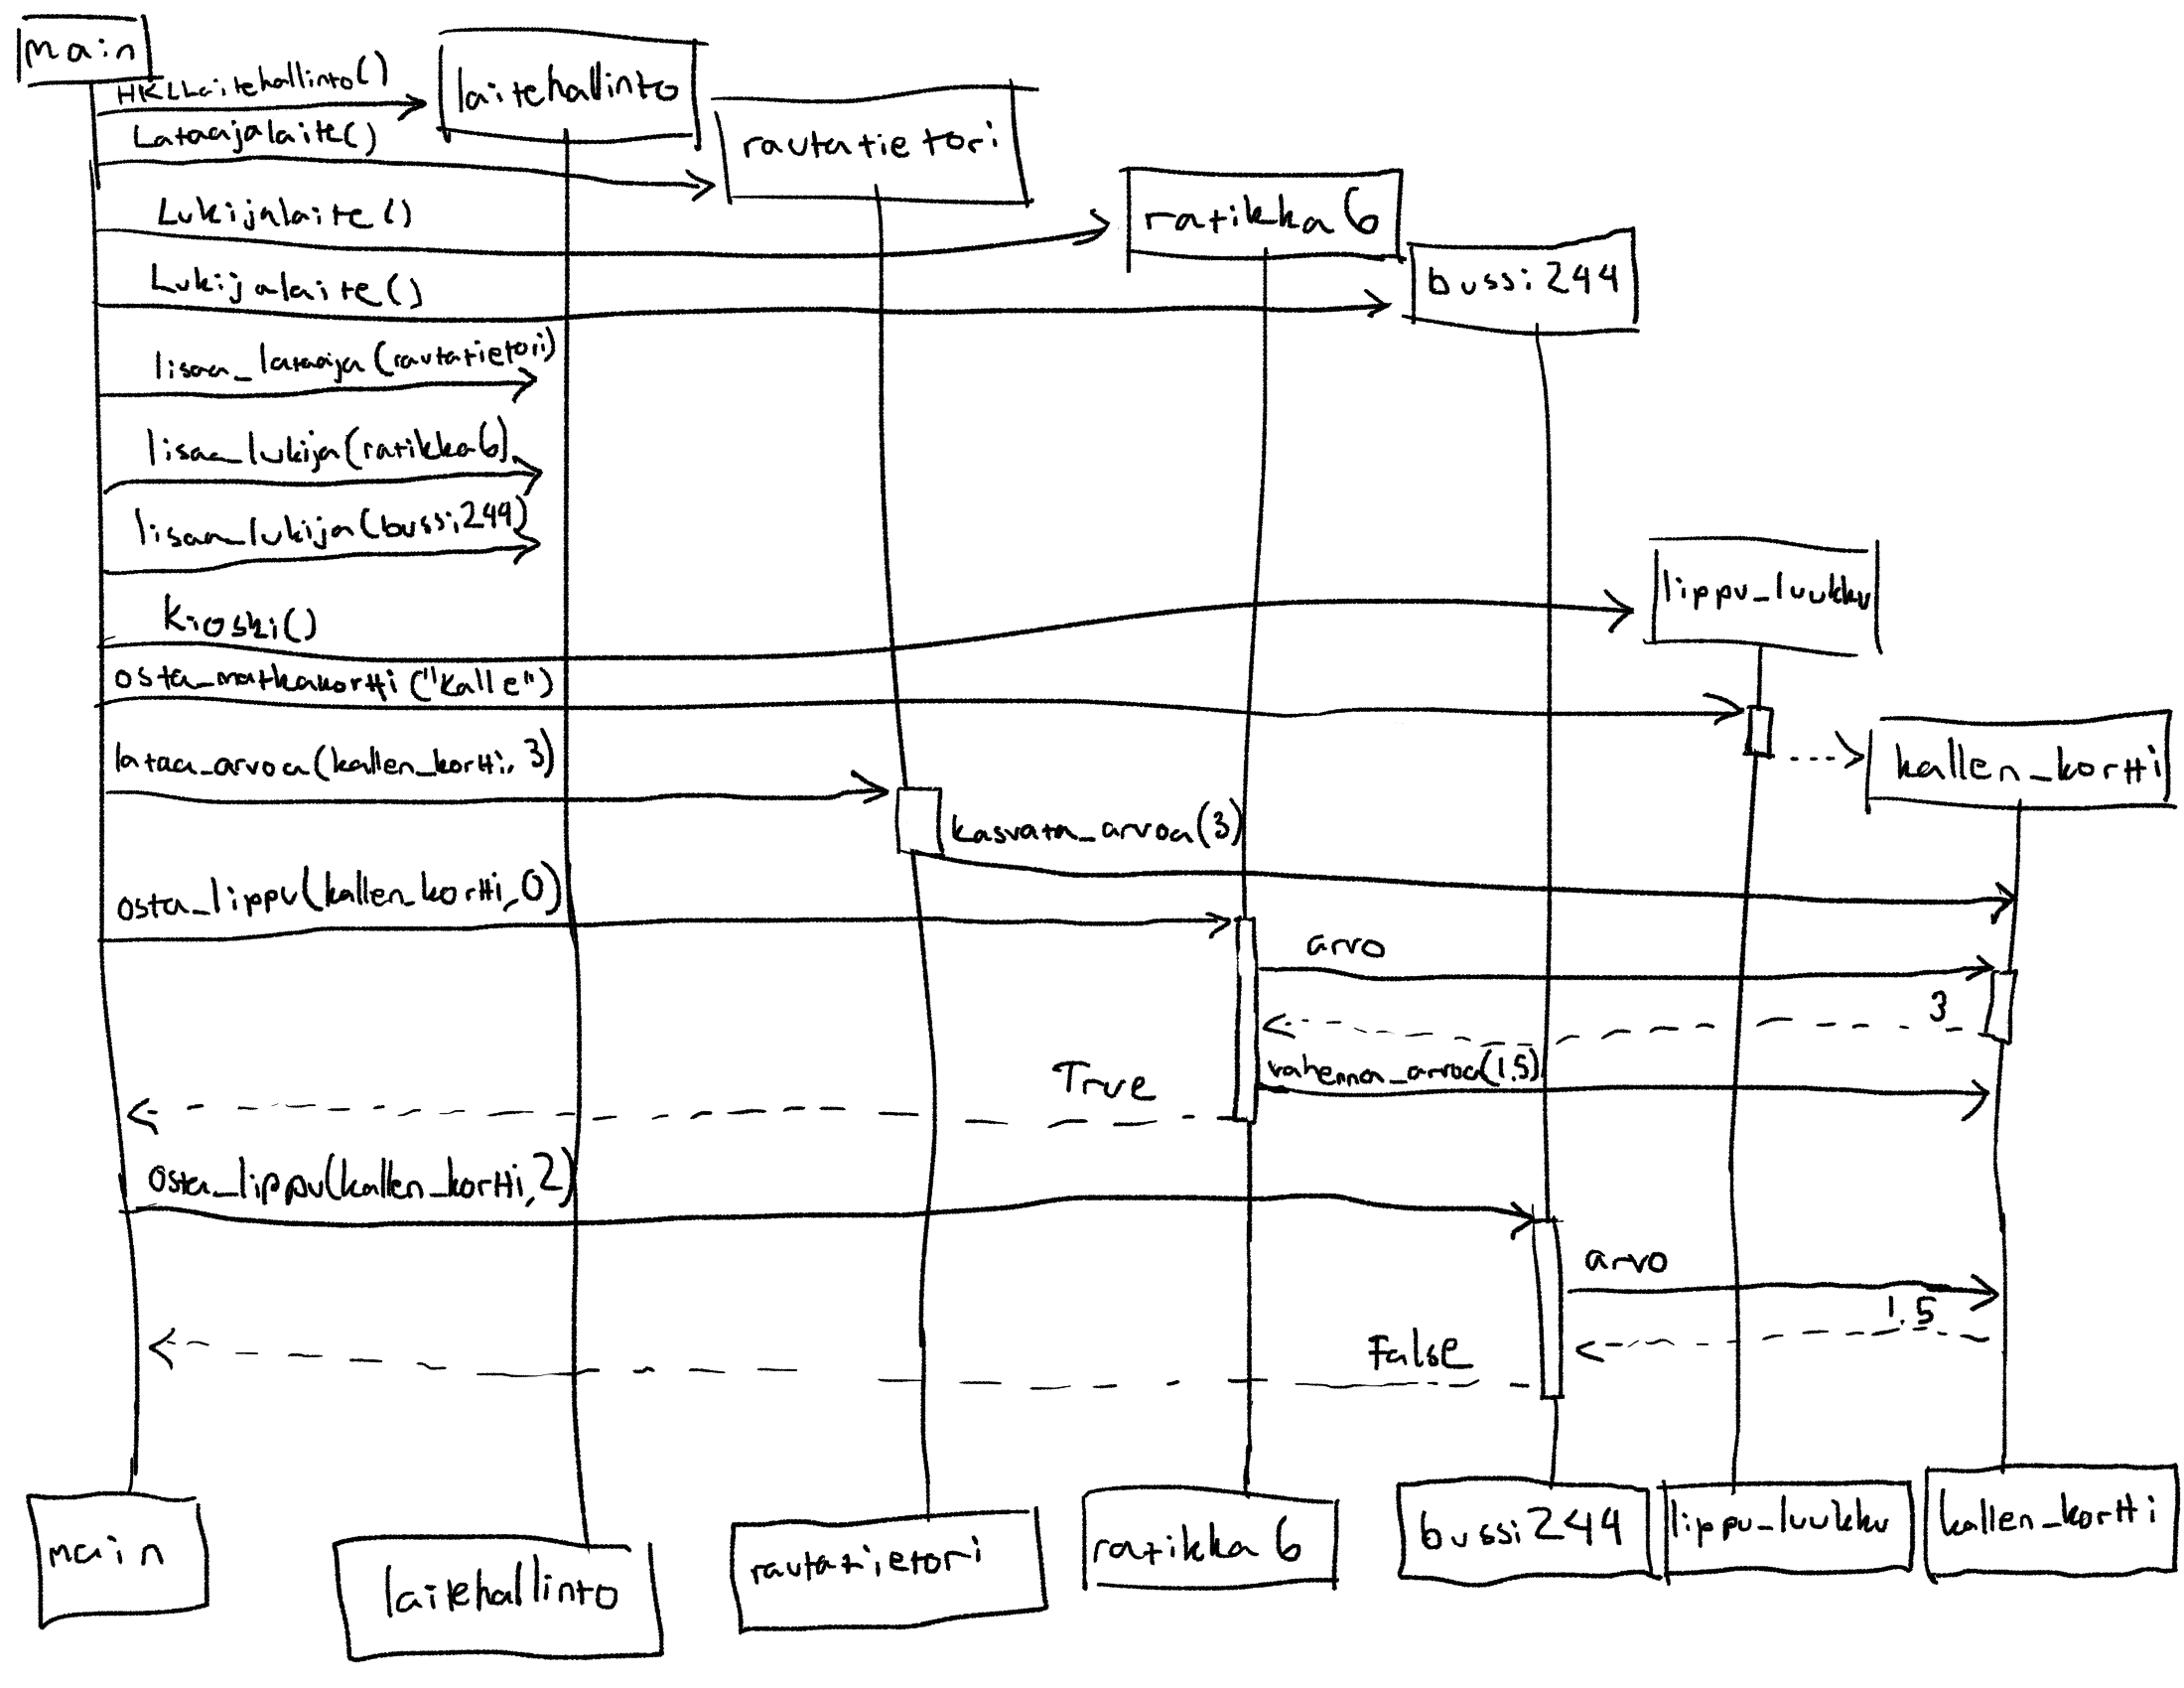 main
HKLLaitehallinto()
laitehallinto
Lataajalaite()
rautatietori
Lukijalaite()
ratikka6
Lukijalaite()
bussi244
lisaa_lataaja(rautatietori)
lisaa_lukija(ratikka6)
lisaa_lukija(bussi244)
Kioski()
lippu_luukku
osta_matkakortti("Kalle")
kallen_kortti
lataa_arvoa(kallen_kortti, 3)
kasvata_arvoa(3)
osta_lippu(kallen_kortti, 0)
arvo
3
vahenna_arvoa(1.5)
True
osta_lippu(kallen_kortti, 2)
arvo
1.5
False
main
laitehallinto
rautatietori
ratikka6
bussi244
lippu_luukku
kallen_kortti